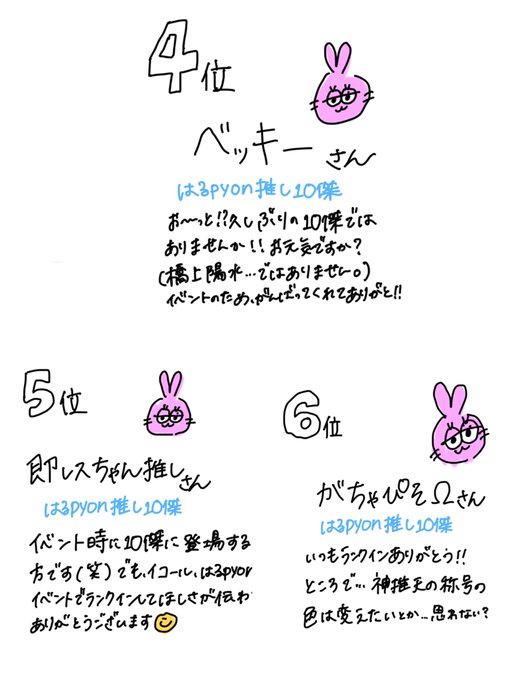 4位
ベッキーさん
はるpyon推し10傑
お〜っと!?久しぶりの10傑では
ありませんか!!お元気ですか?
(橋上陽水…ではありません。)
イベントのため、がんばってくれてありがと!!
5位
即レスちゃん推しさん
はるpyon推し10傑
イベント時に10傑に登場する
方です(笑)でも、イコール、はるpyon
イベントでランクインしてほしさが伝わ
ありがとうございます
6位
がちゃぴそΩさん
はるpyon推し10傑
いつもランクインありがとう!!
ところで…神推天の称号の
色は変えたいとか…思わない?